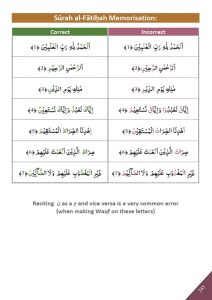 Sūrah al-Fātiḥah Memorisation:
Correct Incorrect
اَلْحَمْدُ لِلّٰهِ رَبِّ الْعٰلَمِيْنَ ﴿1﴾ اَلْحَمْدُ لِلّٰهِ رَبِّ ﴿1﴾
الرَّحْمٰنِ الرَّحِيْمِ ﴿2﴾ الرَّحْمٰنِ ﴿2﴾
مٰلِكِ يَوْمِ الدِّيْنِ ﴿3﴾ مٰلِكِ يَوْمِ ﴿3﴾
اِيَّاكَ نَعْبُدُ وَاِيَّاكَ نَسْتَعِيْنُ ﴿4﴾ اِيَّاكَ نَعْبُدُ وَاِيَّاكَ ﴿4﴾
اِهْدِنَا الصِّرَاطَ الْمُسْتَقِيْمَ ﴿5﴾ اِهْدِنَا الصِّرَاطَ ﴿5﴾
صِرَاطَ الَّذِيْنَ اَنْعَمْتَ عَلَيْهِمْ ﴿6﴾ صِرَاطَ الَّذِيْنَ اَنْعَمْتَ ﴿6﴾
غَيْرِ الْمَغْضُوْبِ عَلَيْهِمْ وَلَا الضَّآلِّيْنَ ﴿7﴾ غَيْرِ الْمَغْضُوْبِ عَلَيْهِمْ وَلَا ﴿7﴾
Reciting ن as a م and vice versa is a very common error
(when making Waqf on these letters)